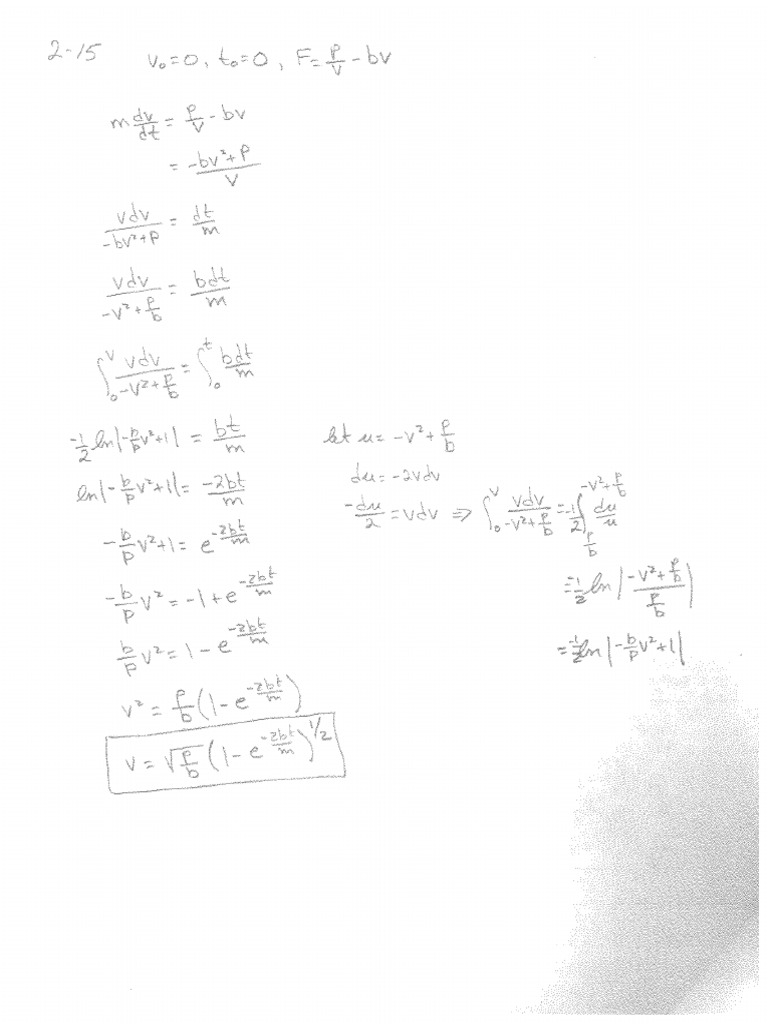 2-15 v₀=0, t₀=0, F=P/v-bv
m dv/dt = P/v - bv
= (-bv²+P)/v
vdv/(-bv²+P) = dt/m
vdv/(-v²+P/b) = bdt/m
∫₀^v vdv/(-v²+P/b) = ∫₀^t bdt/m
-1/2 ln|-b/P v²+1| = bt/m
ln|-b/P v²+1| = -2bt/m
-b/P v²+1 = e^(-2bt/m)
-b/P v² = -1+e^(-2bt/m)
b/P v² = 1-e^(-2bt/m)
v² = P/b (1-e^(-2bt/m))
v = √(P/b) (1-e^(-2bt/m))^(1/2)
let u = -v²+P/b
du = -2vdv
-du/2 = vdv ⇒ ∫₀^v vdv/(-v²+P/b) = -1/2 ∫_(P/b)^(-v²+P/b) du/u
= -1/2 ln|(-v²+P/b)/(P/b)|
= -1/2 ln|-b/P v²+1|